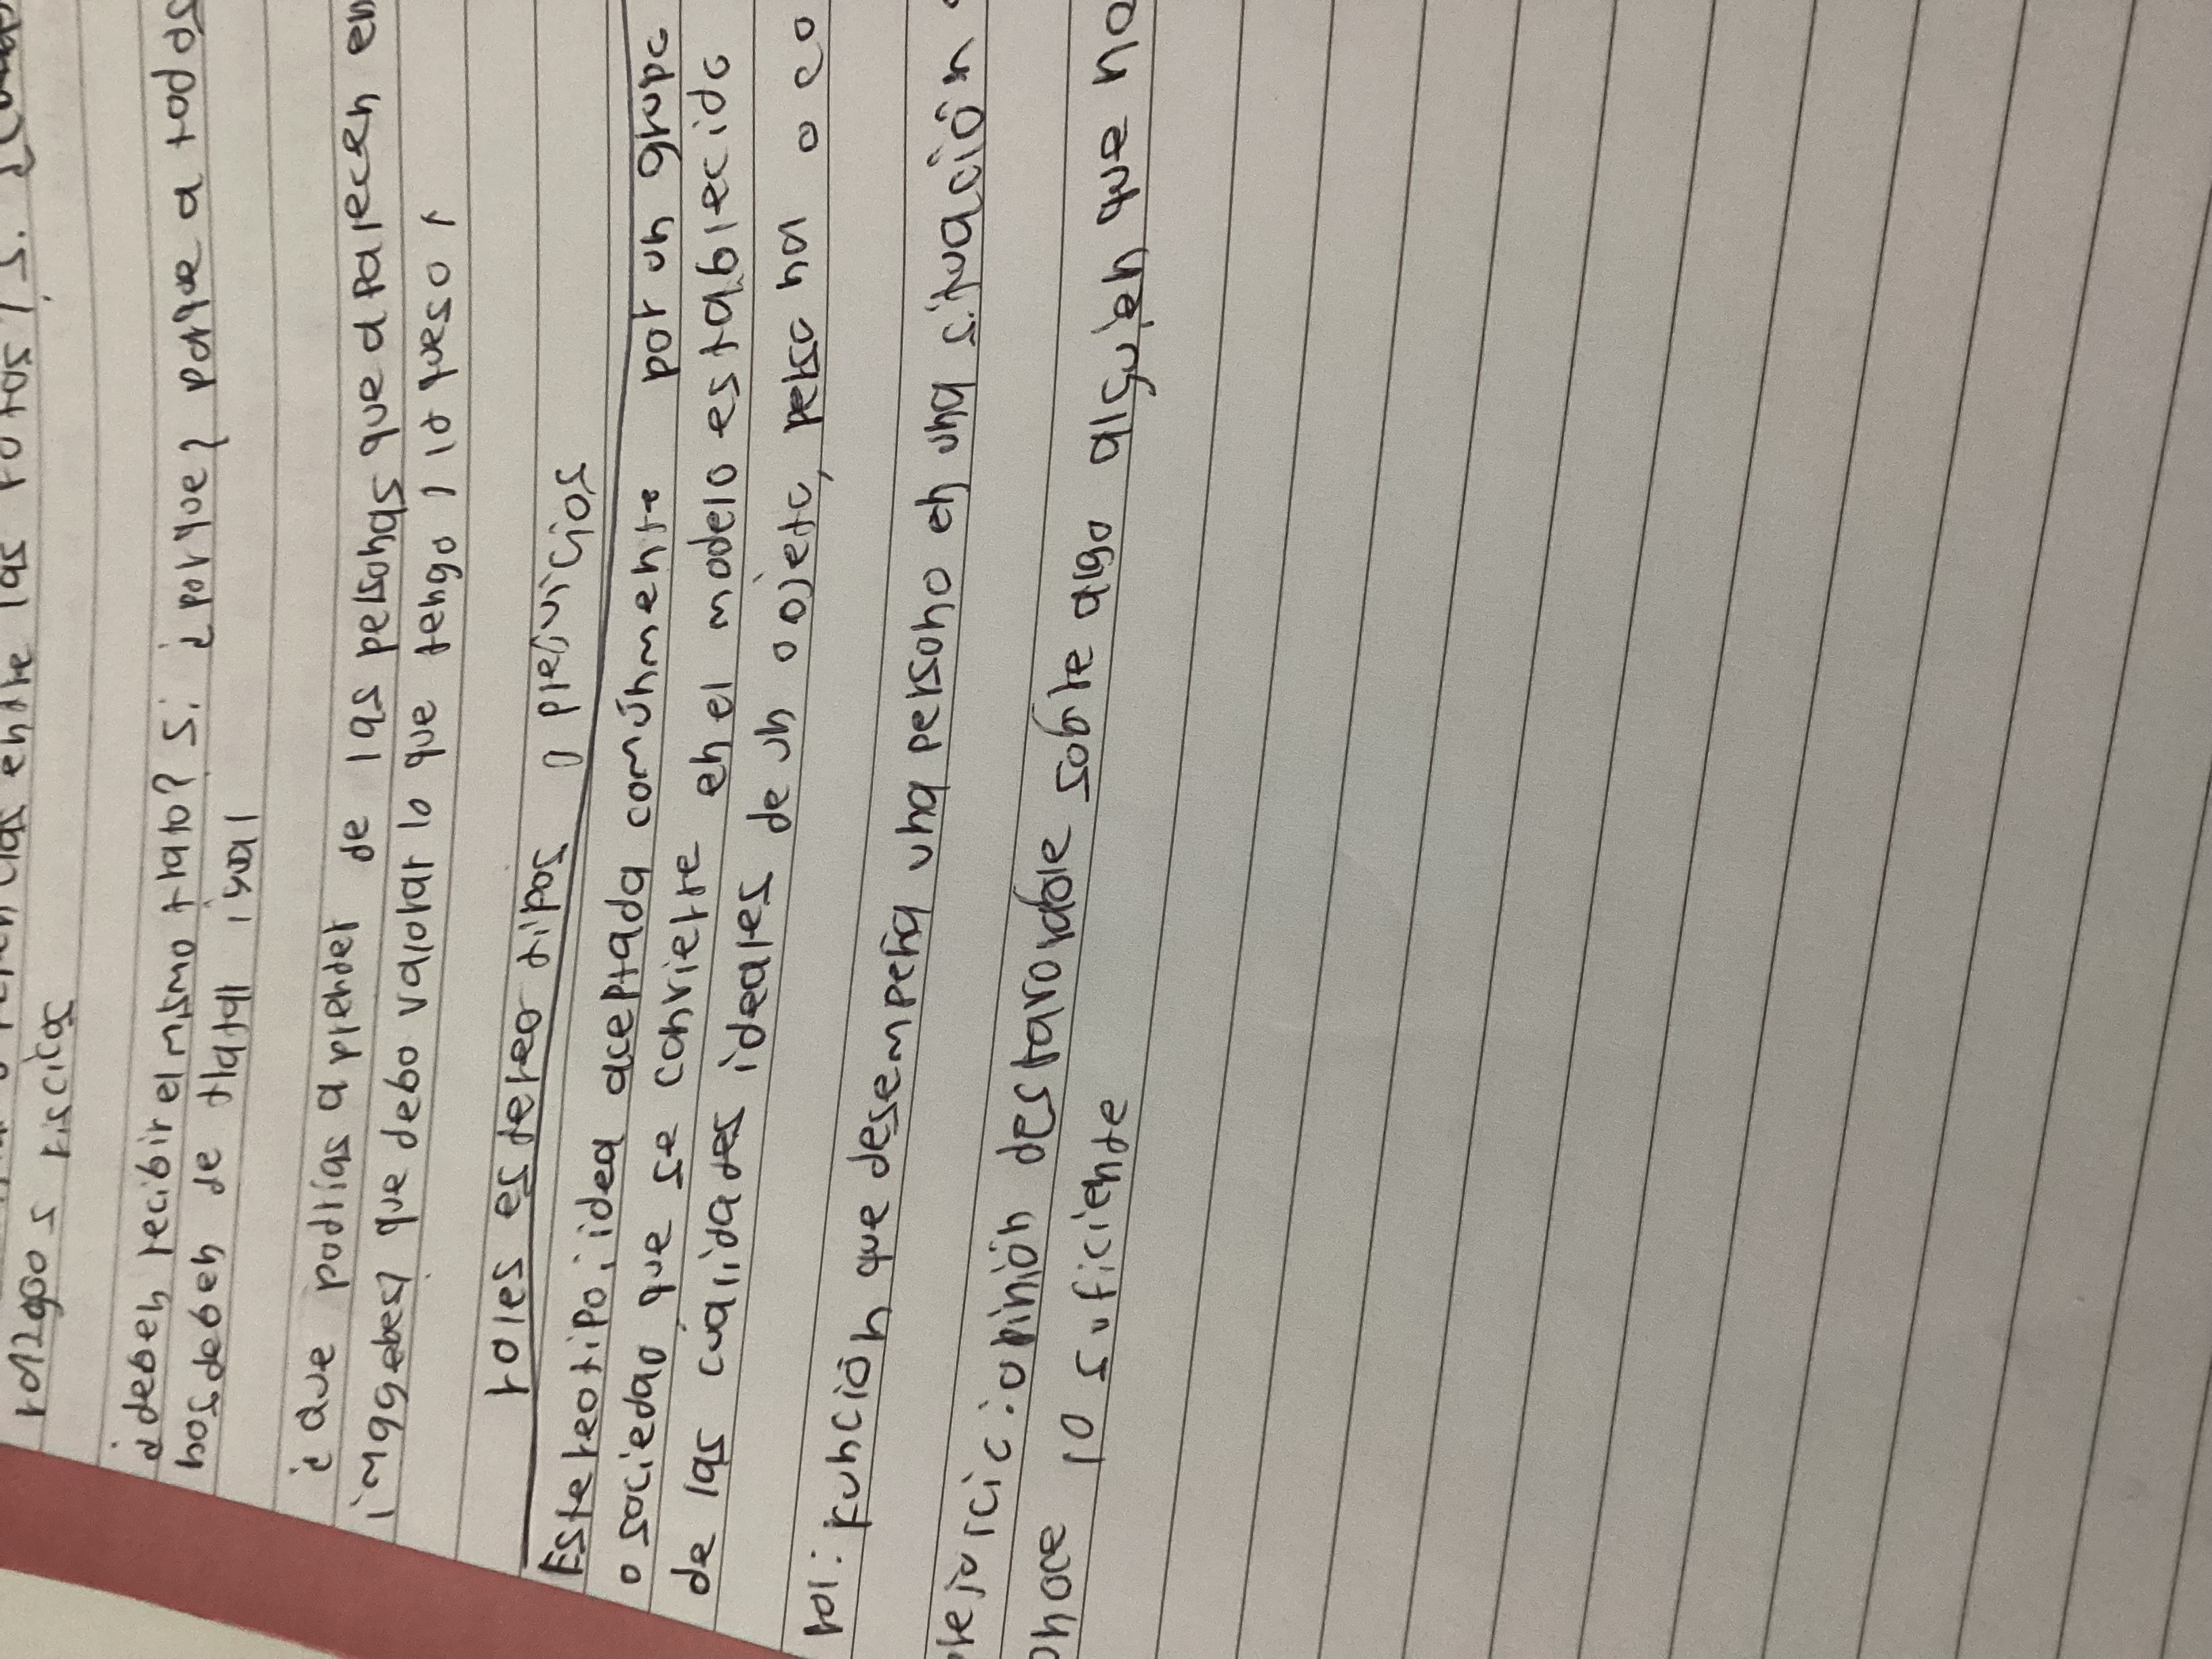 entre las fotos? si. ¿
rasgos fisicos
¿deben recibir el mismo trato? si ¿porque? porque a todos
nos deben de tratar igual
¿que podrías aprender de las personas que aparecen en
imagenes? que debo valorar lo que tengo y lo que so y
roles estereo tipos y prejuicios
Estereotipo: idea aceptada comúnmente por un grupo
o sociedad que se convierte en el modelo establecido
de las cualidades ideales de un objeto, persona o co
rol: función que desempeña una persona en una situación
rejuicio: opinión desfavorable sobre algo alguien que no
onoce lo suficiente